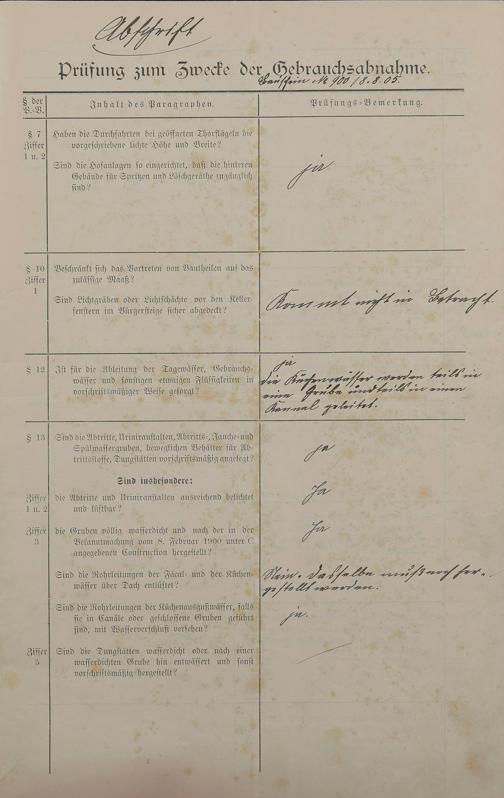 Abschrift
Prüfung zum Zwecke der Gebrauchsabnahme.
Bauschein № 900/8.8.05.
§ der
B.-B.
Inhalt des Paragraphen.
Prüfungs-Bemerkung.
§ 7
Ziffer
1 u. 2
Haben die Durchfahrten bei geöffneten Thorflügeln die
vorgeschriebene lichte Höhe und Breite?
Sind die Hofanlagen so eingerichtet, daß die hinteren
Gebäude für Spritzen und Löschgeräthe zugänglich
sind?
ja
§ 10
Ziffer
1
Beschränkt sich das Vortreten von Bautheilen auf das
zulässige Maaß?
Sind Lichtgräben oder Lichtschächte vor den Keller-
fenstern im Bürgersteige sicher abgedeckt?
Kommt nicht in Betracht.
§ 12
Ist für die Ableitung der Tagewässer, Gebrauchs-
wässer und sonstigen etwaigen Flüssigkeiten in
vorschriftsmäßiger Weise gesorgt?
ja
die Küchenwässer werden teils in
eine Grube und teils in einen
Kannal geleitet.
§ 13
Sind die Abtritte, Uriniranstalten, Abtritts-, Jauche- und
Spülwassergruben, beweglichen Behälter für Ab-
trittsstoffe, Dungstätten vorschriftsmäßig angelegt?
ja
Sind insbesondere:
Ziffer
1 u. 2
die Abtritte und Uriniranstalten ausreichend belichtet
und lüftbar?
Ja
Ziffer
3
die Gruben völlig wasserdicht und nach der in der
Bekanntmachung vom 8. Februar 1900 unter C
angegebenen Construction hergestellt?
Ja
Sind die Rohrleitungen der Fäcal- und der Küchen-
wässer über Dach entlüftet?
Nein. Dasselbe muß noch her-
gestellt werden.
Sind die Rohrleitungen der Küchenausgußwässer, falls
sie in Canäle oder geschlossene Gruben geführt
sind, mit Wasserverschluß versehen?
ja.
Ziffer
5
Sind die Dungstätten wasserdicht oder nach einer
wasserdichten Grube hin entwässert und sonst
vorschriftsmäßig hergestellt?